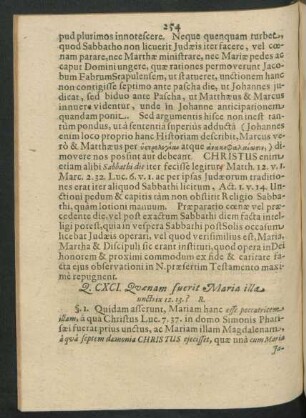 254
pud plurimos innotescere. Neque quenquam turbet,
quod Sabbatho non licuerit Judæis iter facere, vel cœ-
nam parare, nec Marthæ ministrare, nec Mariæ pedes ac
caput Domini ungere, quæ rationes permoverunt Jaco-
bum Fabrum Stapulensem, ut statueret, unctionem hanc
non contigisse septimo ante pascha die, ut Johannes ju-
dicat, sed biduo ante Pascha, ut Matthæus & Marcus
innuere videntur, unde in Johanne anticipationem
quandam ponit. Sed argumentis hisce non inest tan-
tum pondus, ut à sententia superius adductâ (Johannes
enim loco proprio hanc Historiam describit, Marcus ve-
rò & Matthæus per atque
) di-
movere nos possint aut debeant. CHRISTUS enim
eriam alibi Sabbathi die iter fecisse legitur, Matth. 12. v. 1.
Marc. 2. 22. Luc. 6. v. 1. ac per ipsas Judæorum traditio-
nes erat iter aliquod Sabbathi licitum, Act. 1. v. 14. Un-
ctioni pedum & capitis tàm non obstitit Religio Sabba-
thi, quàm lotioni manuum. Præparatio cœnæ vel præ-
cedente die, vel post exactum Sabbathi diem facta intelli-
gi potest, quia in vespera Sabbathi post Solis occasum
licebat Judæis operari, vel quod verisimilius est, Maria,
Martha & Discipuli sic erant instituti, quod opera in Dei
honorem & proximi commodum ex fide & caritate fa-
cta ejus observationi in N. præsertim Testamento maxi-
mè repugnent.
Q. CXCI. Quænam fuerit Maria illa
unctrix 12. 13.? R.
§. 1. Quidam asserunt, Mariam hanc esse peccatricem
illam, à quâ Christus Luc. 7. 37. in domo Simonis Phari-
sæi fuerat prius unctus, ac Mariam illam Magdalenam,
à quâ septem dæmonia CHRISTUS ejecisset, quæ unà cum Maria
Ja-